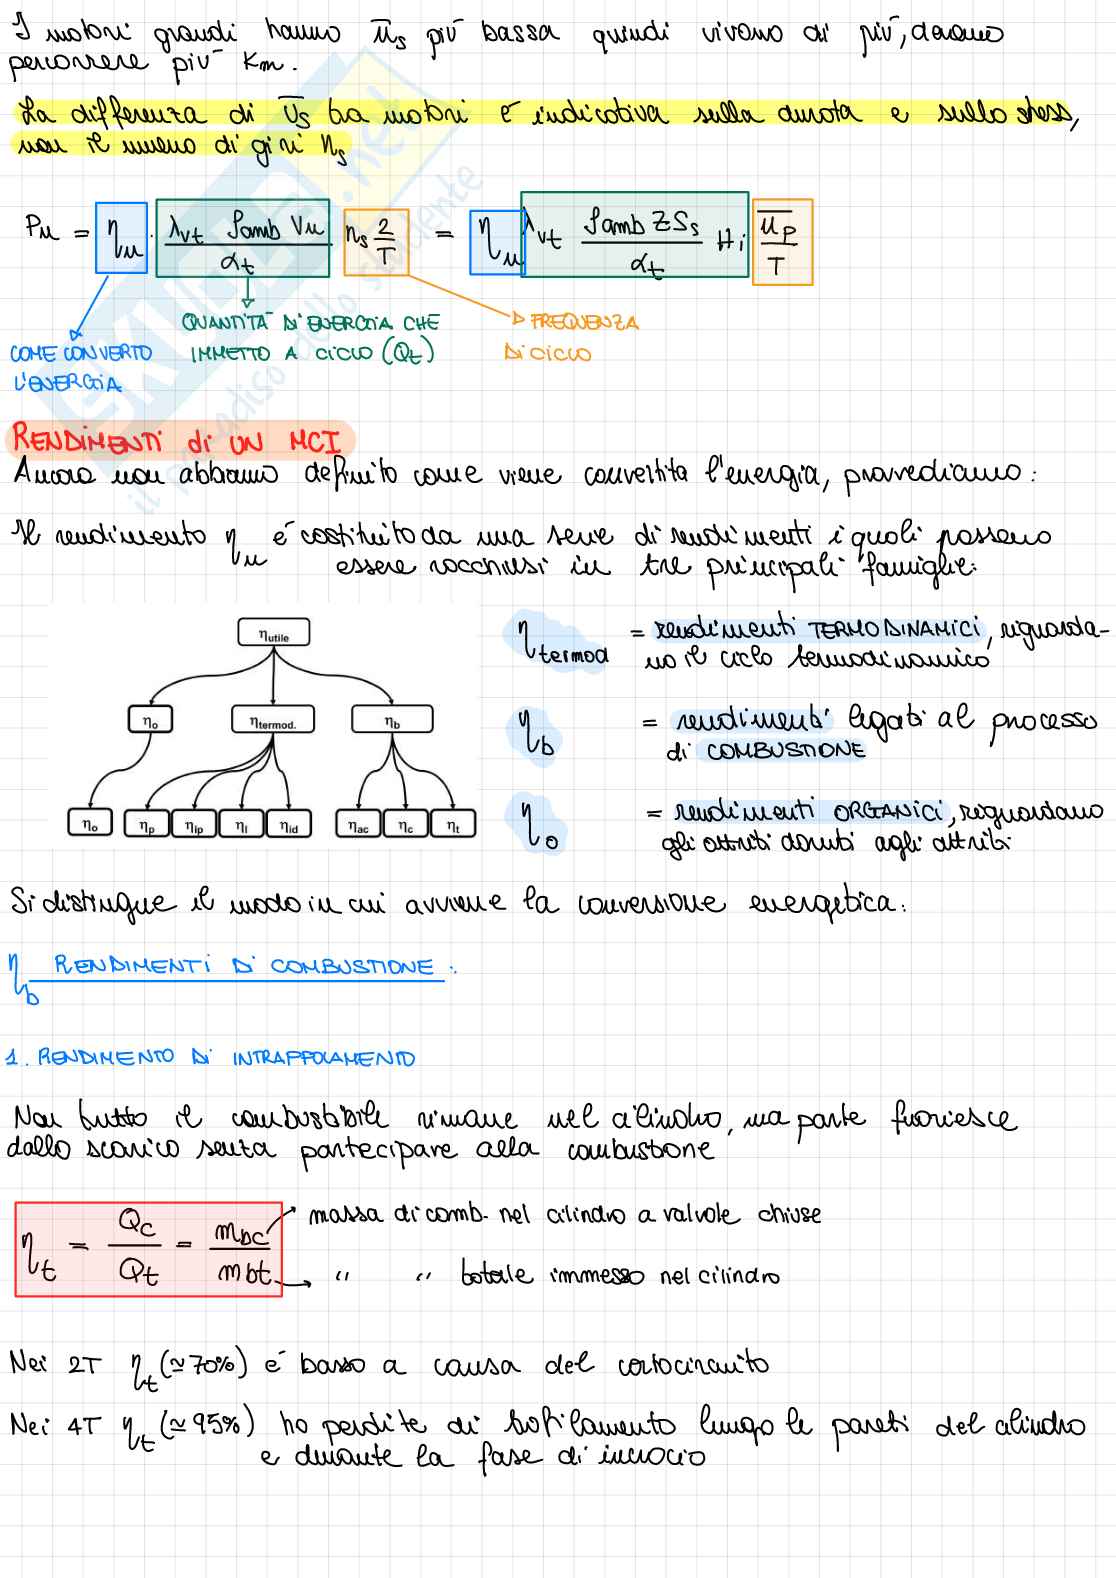 I motori grandi hanno ū_s più bassa quindi vivono di più, devono
percorrere più Km.
La differenza di ū_s tra motori è indicativa sulla durata e sullo stress,
non il numero di giri n_s
P_u = η_u · λ_vt ρ_amb V_u / α_t n_s 2/T = η_u λ_vt ρ_amb Z S_s / α_t H_i ū_p / T
QUANTITÀ DI ENERGIA CHE
IMMETTO A CICLO (Q_t)
FREQUENZA
DI CICLO
COME CONVERTO
L'ENERGIA
RENDIMENTI di UN MCI
Ancora non abbiamo definito come viene convertita l'energia, provvediamo:
Il rendimento η_u è costituito da una serie di rendimenti i quali possono
essere racchiusi in tre principali famiglie:
η_utile
η_o η_termod. η_b
η_o η_p η_lp η_l η_id η_ac η_c η_t
η_termod = rendimenti TERMODINAMICI, riguarda-
no il ciclo termodinamico
η_b = rendimenti legati al processo
di COMBUSTIONE
η_o = rendimenti ORGANICI, riguardano
gli attriti dovuti agli attriti
Si distingue il modo in cui avviene la conversione energetica:
η_b RENDIMENTI DI COMBUSTIONE:
1. RENDIMENTO DI INTRAPPOLAMENTO
Non tutto il combustibile rimane nel cilindro, ma parte fuoriesce
dallo scarico senza partecipare alla combustione
η_t = Q_c / Q_t = m_bc / m_bt
massa di comb. nel cilindro a valvole chiuse
" " totale immesso nel cilindro
Nei 2T η_t (≃70%) è basso a causa del cortocircuito
Nei 4T η_t (≃95%) ho perdite di trafilamento lungo le pareti del cilindro
e durante la fase di incrocio
SKUOLA.net
il paradiso dello studente